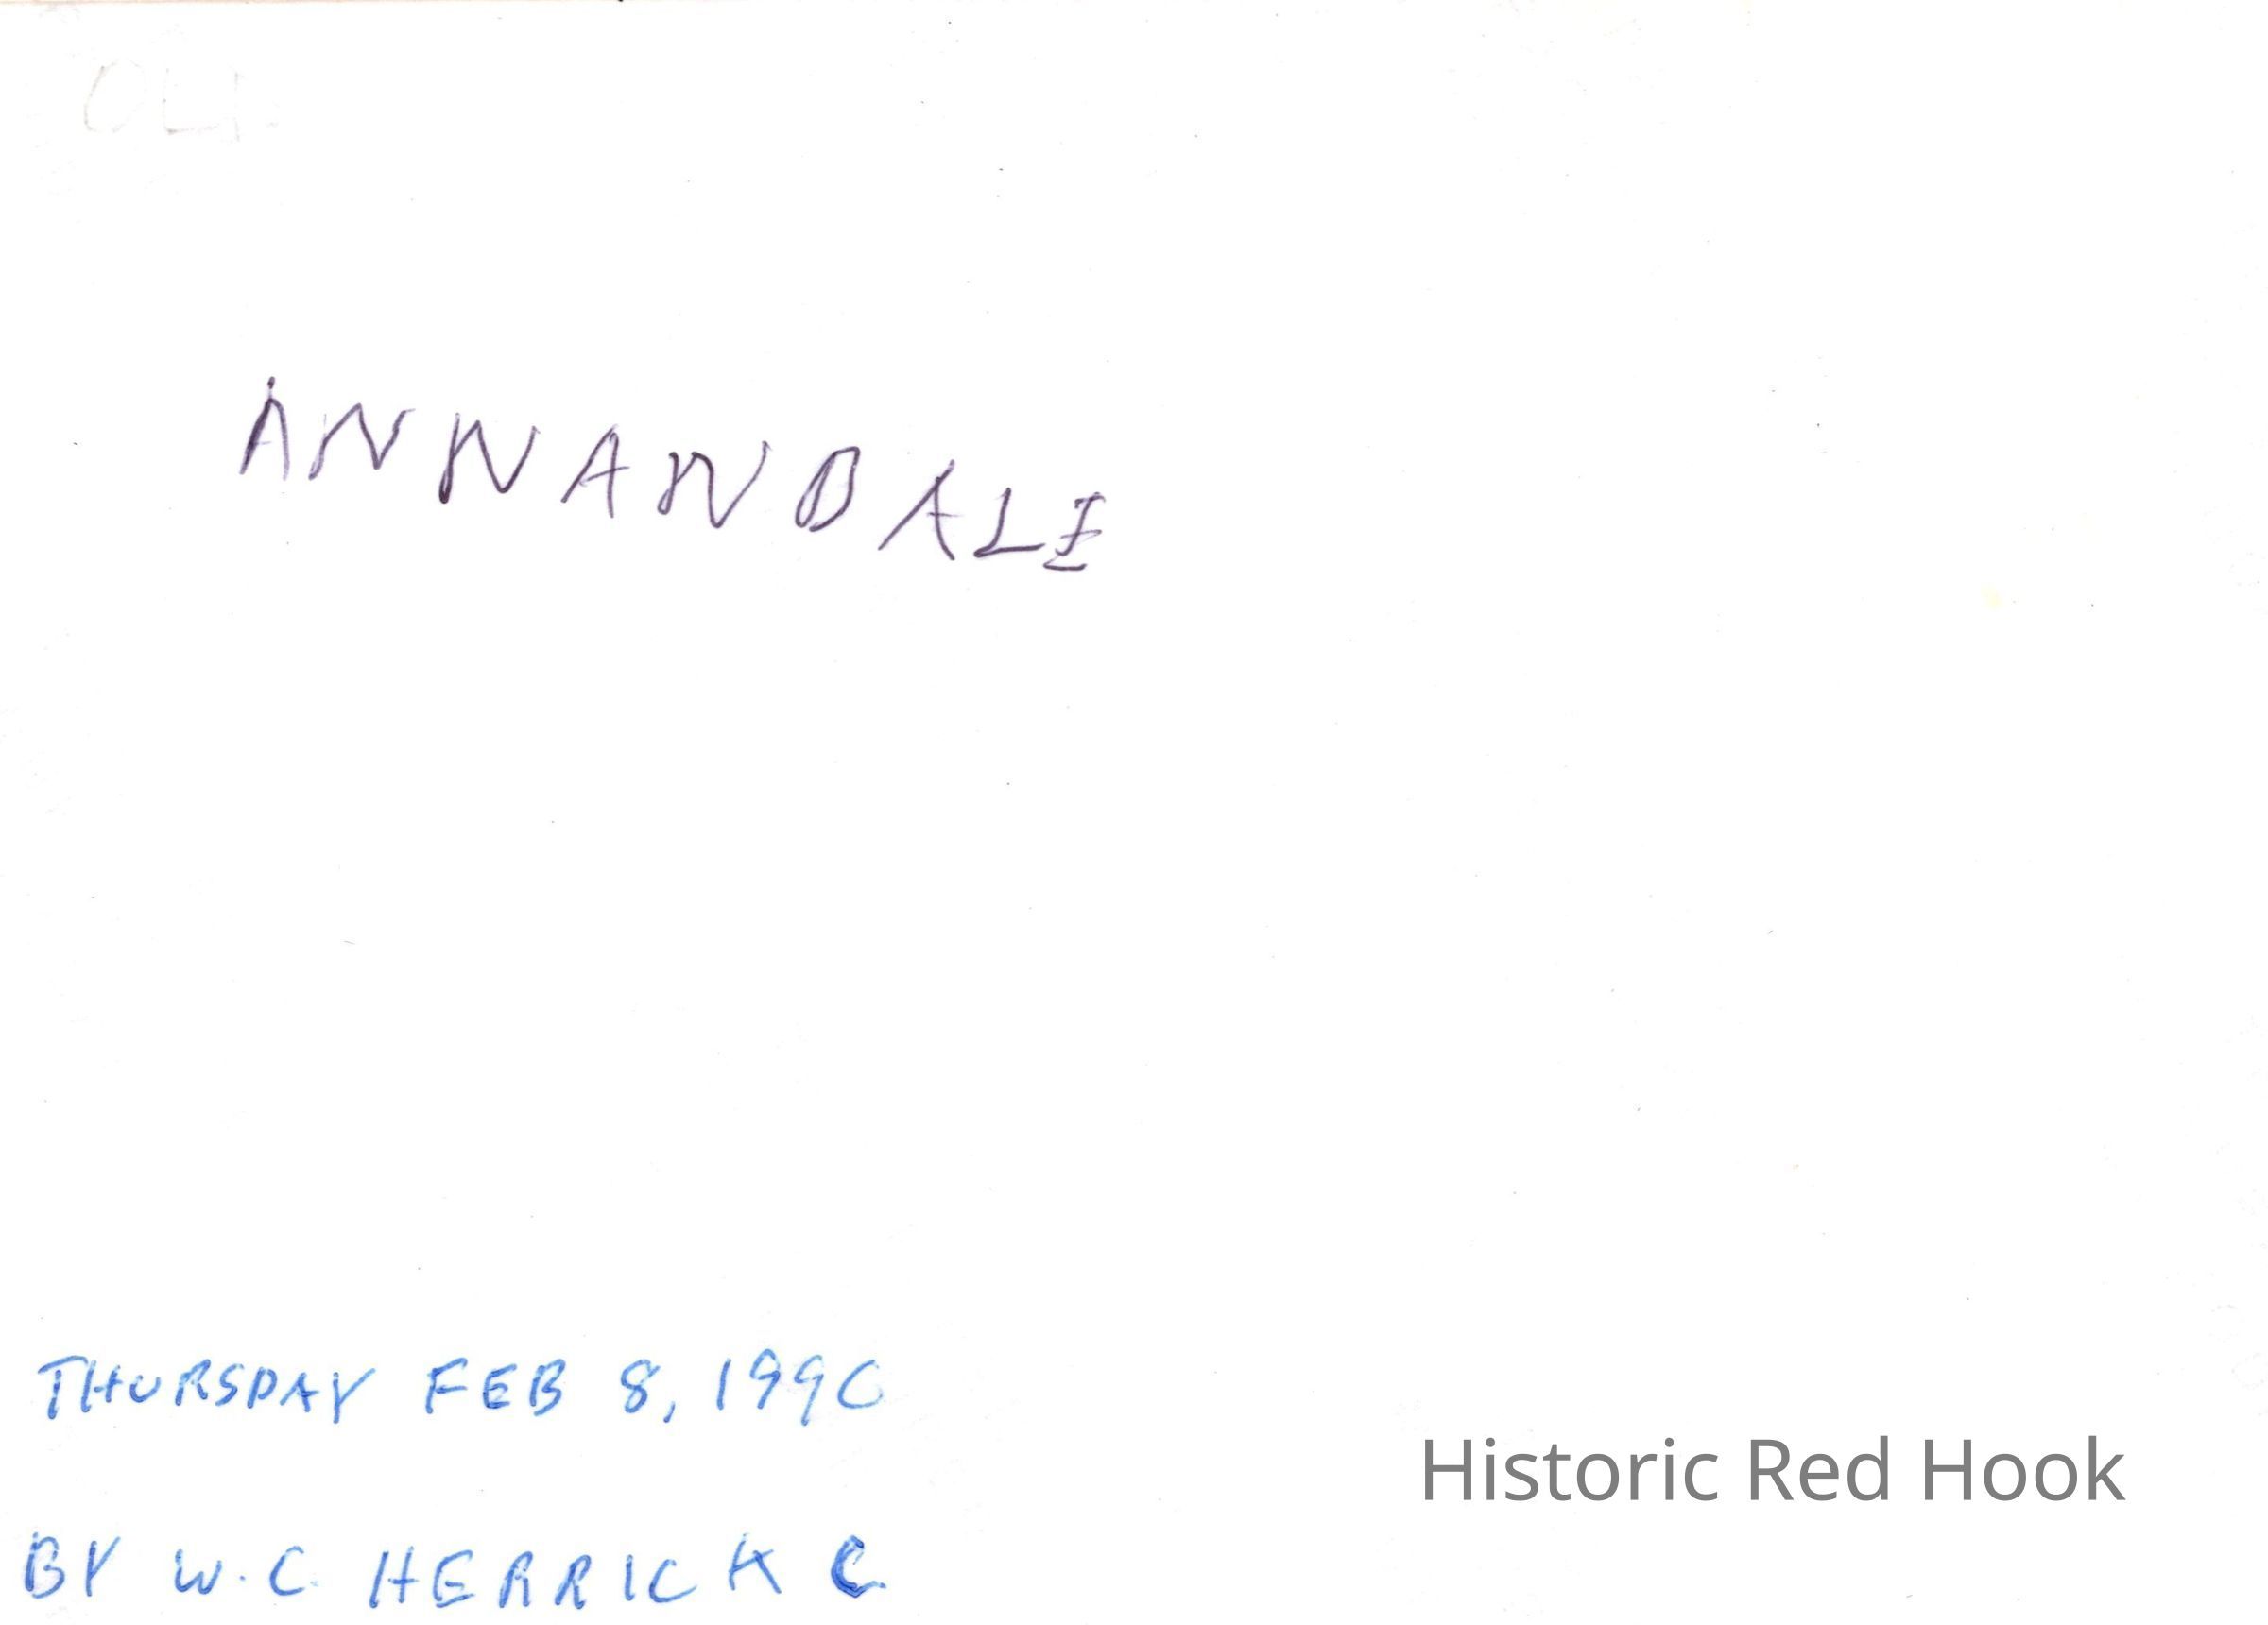 ANNANDALE
THURSDAY FEB 8, 1990
Historic Red Hook
BY W.C. HERRICK C